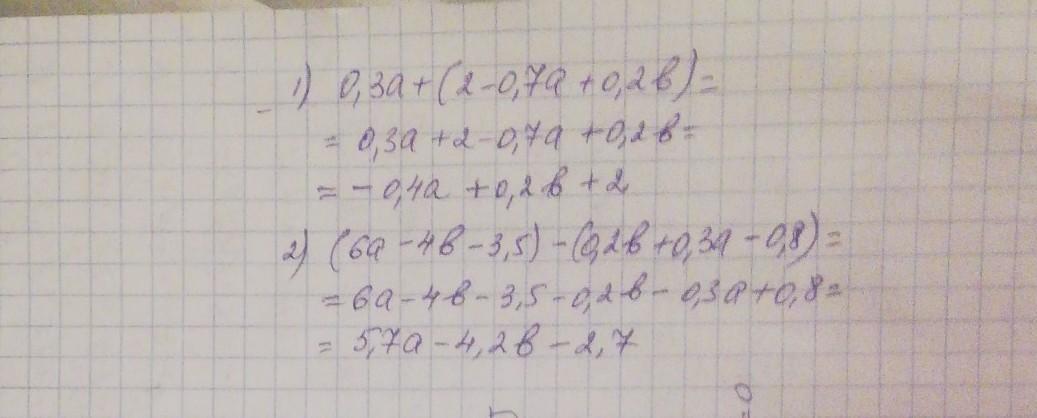 1) 0,3a+(2-0,7a+0,2в)=
= 0,3a+2-0,7a+0,2в=
= -0,4a +0,2в +2
2) (6a-4в-3,5)-(0,2в+0,3a-0,8)=
=6a-4в-3,5-0,2в-0,3a+0,8=
= 5,7a-4,2в-2,7